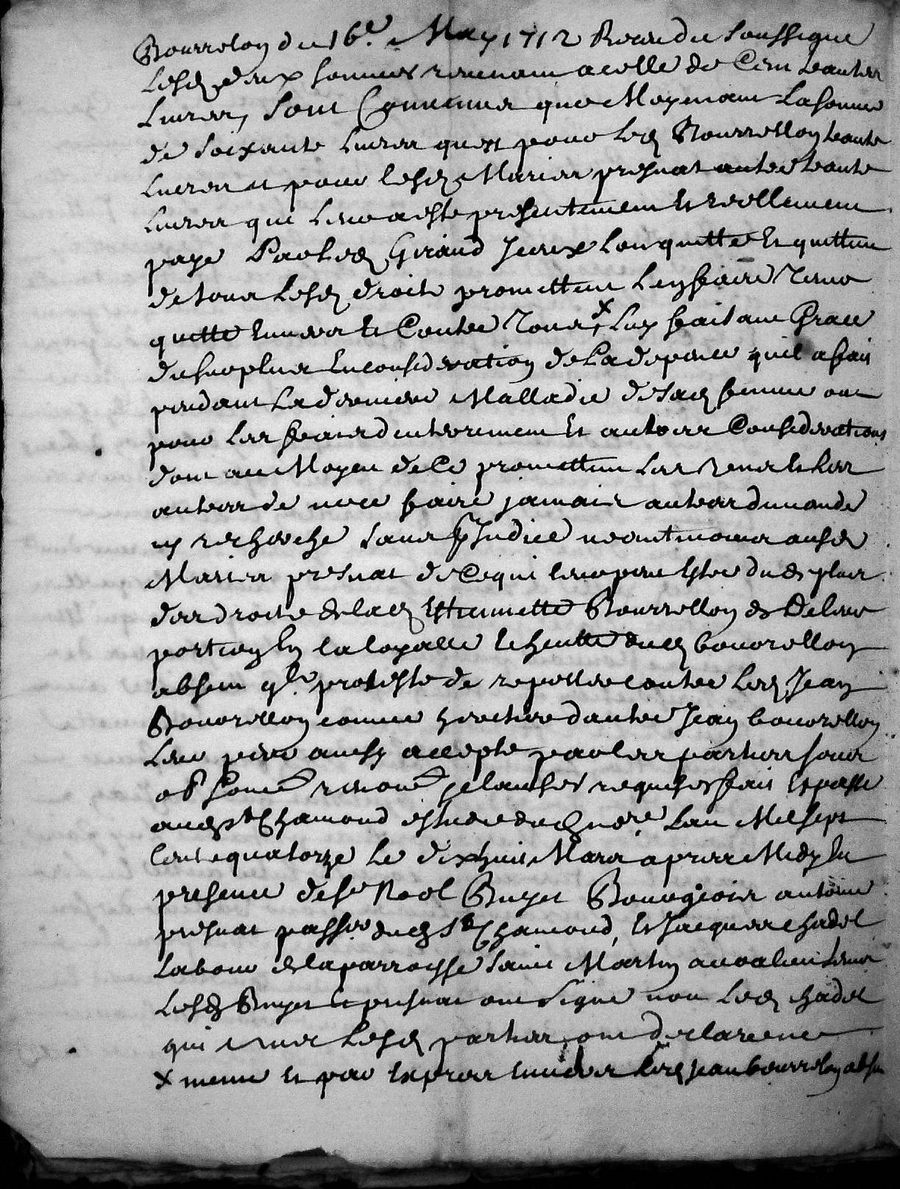 Bourrellon du 16e May 1712 Receu du soussigné
lesd. deux sommes revenant a celle de Cent trante
Livres, sont Convenus que Moyenant la somme
de soixante livres quest pour led. Bourrellon trante
livres et pour lesd. Mariés presnat autre trante
livres qui leur a esté presentement et reellement
payé Par led. Giraud Iceux Lon quitté et quittent
de tous lesd. droits promettent Len faire tenir
quitte envers et Contre Tous x Luy faisant Grace
du surplus en consideration de La depence quil a fait
pendant La derniere Malladie de sad. femme ou
pour les frais denterrement et autres Considerations
dont au Moyen de Ce promettent Les uns et les
autres de ne ce faire jamais autres demande
ny recherche sans preJudice neantmoins ausd.
Mariés presnat de Ce qui leur peut estre du de plus
des droits de lad. Estiennette Bourrellon et De leur
portion en la loyalle escheutte dud. bourrellon
absent qls proteste de repettre contre led. Jean
Bourrellon comme heretier dautre Jean bourrellon
leur pere aussy accepté par les parties sous
obl. soumn. renonn. et clauses requises fait et passé
aud. St Chamond estude du no.re Lan Mil sept
Cent quatorze Le dixhuit Mars apres Midy En
presence de sr Noel Buyet Bourgeois antoine
presnat passr. dud. St Chamond, et Jacques chadel
Labour. de la parroisse saint Martin acoalieu temoins
Lesd. Buyet et presnat ont signé non Led. chadel
qui avec Lesd. parties ont declaré ne
x meme et par Expres envers led. Jean bourrelon absent